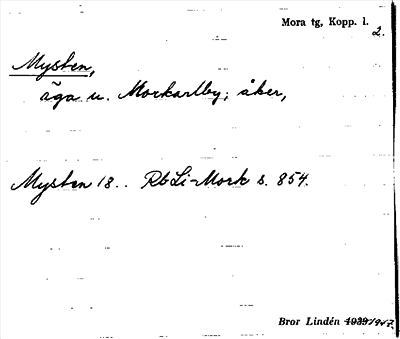 Mora tg, Kopp. l.
2.
Mysten,
äga u. Morkarlby; åker,
Mysten 18.. RbLi-Mork s. 854.
Bror Lindén 1939 1947.